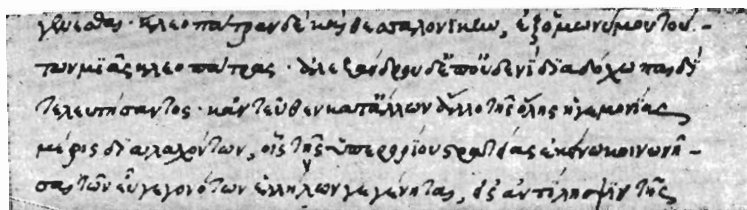 γενέσθαι· κλεοπάτραν δὲ καὶ θεσσαλονίκην, ἐξ ὁμωνύμου τού-
των μιᾶς κλεοπάτρας· ἀλεξάνδρου δ' ἐπ' οὐδενὶ διαδόχω παιδὶ
τελευτήσαντος· κἀντεῦθεν κατ' ἄλλων ἄλλο τῆς ὅλης ἡγεμονίας
μέρος διαλαχόντων, οἷς τῆς ὑπερορίου στρατείας ἐκείνω κοινωνῆ-
σαι τῶν εὖ γεγονότων ἑλλήνων γεγένηται, ἀντίληψιν τῆς